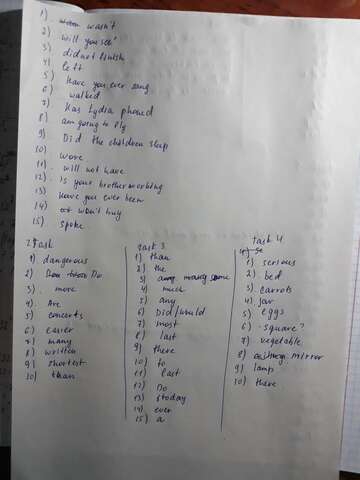 1) wasn't
2) will you see
3) did not finish
4) left
5) Have you ever sang
6) walked
7) Has Lydia phoned
8) am going to fly
9) Did the children sleep
10) wore
11) will not have
12) is your brother working
13) Have you ever been
14) won't buy
15) spoke
2 Task
1) dangerous
2) Do
3) more
4) Are
5) concerts
6) easier
7) many
8) written
9) shortest
10) than
task 3
1) than
2) the
3) some
4) much
5) any
6) Did/would
7) most
8) last
9) there
10) to
11) last
12) Do
13) today
14) ever
15) a
task 4
1) serious
2) bed
3) carrots
4) jar
5) eggs
6) square?
7) vegetable
8) mirror
9) lamp
10) there